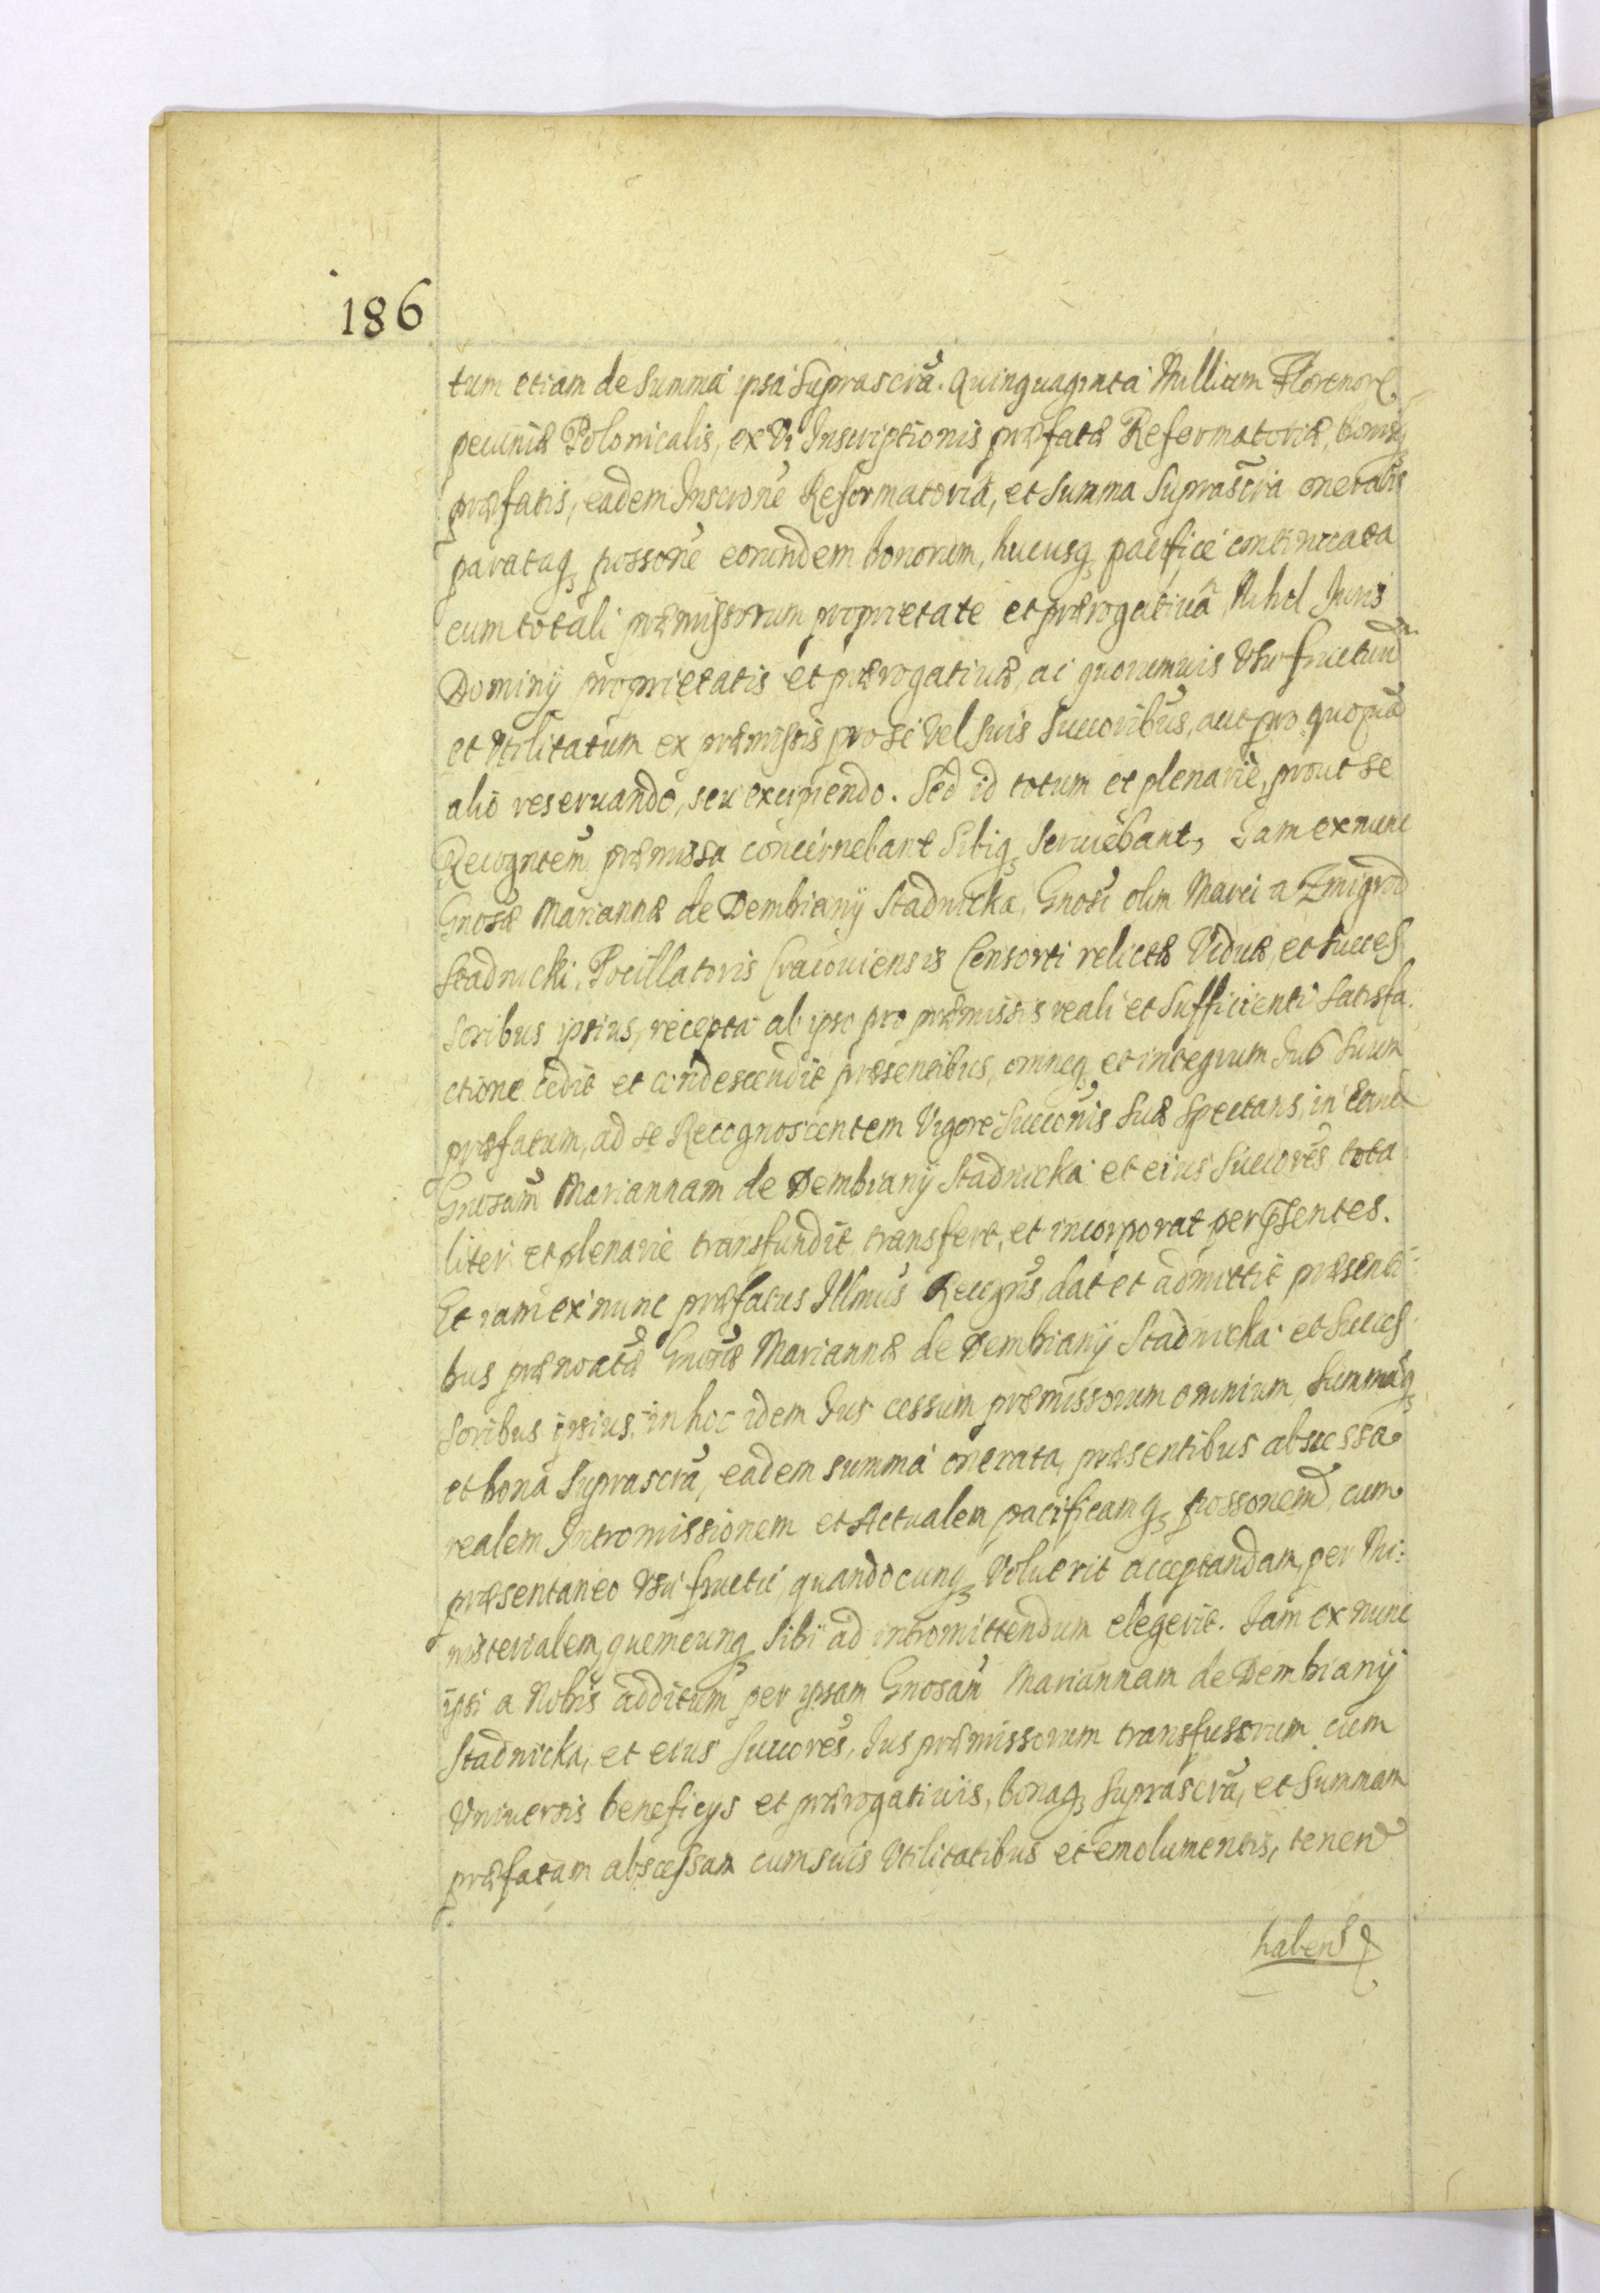 186
tum etiam de summa ipsa suprascrã. Quinquaginta Millium Florenor
pecuniæ Polonicalis, ex Vi Inscriptionis præfatæ Reformatoriæ, bonisq
præfatis, eadem Inscrõne Reformatoria, et summa suprascrã oneratis
parataq possõne eorundem bonorum, hucusq pacifice continuata
cum totali præmissorum proprietate et prærogatiua, Nihil Juris
Dominij proprietatis et prærogatiuæ, ac quorumuis Vsufructuu
et Vtilitatum ex præmissis pro se vel suis Succoribus, aut pro quopiã
alio reseruando, seu excipiendo. Sed id totum et plenarie, prout se
Recogntem præmissa concernebant sibiq seruiebant, Jam ex nunc
Gnosæ Mariannæ de Dembiany Stadnicka, Gnosi olim Marci a Zmigrod
Stadnicki, Pocillatoris Cracouiensis Consorti relictæ Viduæ, et succes
soribus ipsius, recepta ab ipso pro præmissis reali et sufficienti satisfa
ctione cedit et condescendit præsentibus, omneq et integrum Jus suum
præfatum, ad se Recognoscentem Vigore Succõnis suæ spectans, in eand
Gnosam Mariannam de Dembiany Stadnicka et eius Succores tota
liter et plenarie transfundit transfert, et incorporat per pñsentes.
Et iam ex nunc præfatus Illmus Recogns, dat et admittit præsenti
bus prænoatæ Gnosæ Mariannæ de Dembiany Stadnicka et succes
soribus ipsius, in hoc idem Jus cessum præmissorum omnium, summaq
et bona suprascrã, eadem summa onerata, præsentibus abscessa
realem Intromissionem et Actualem pacificamq possonem, cum
præsentaneo Vsufructu, quandocunq Voluerit acceptandam, per Mi=
nisterialem, quemcunq sibi ad intromittendum elegerit. Jam ex nunc
ipsi a Nobis additum per ipsam Gnosam Mariannam de Dembiany
Stadnicka, et eius Succores, Jus præmissorum transfussorum cum
Vniuersis beneficys et prærogatiuis, bonaq suprascrã, et summam
præfatam abscessam cum suis Vtilitatibus et emolumentis, tenend
habend